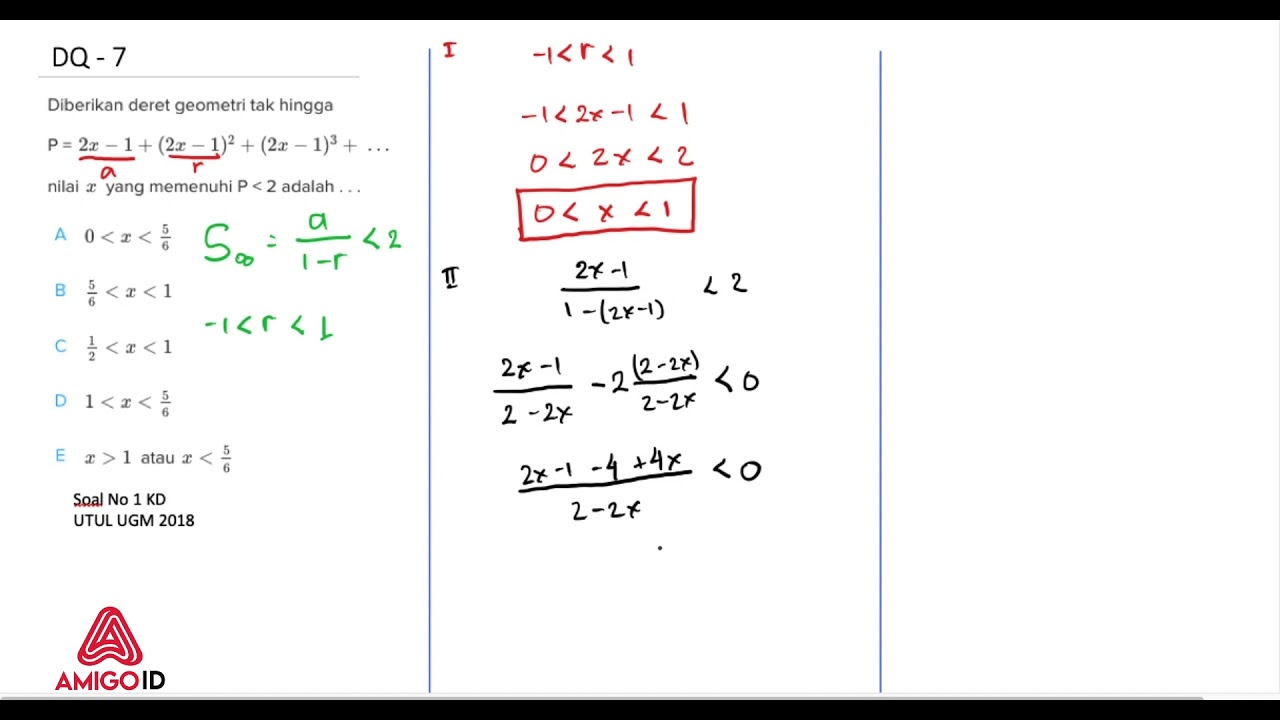 DQ - 7
Diberikan deret geometri tak hingga
P = 2x − 1 + (2x − 1)² + (2x − 1)³ + ...
a r
nilai x yang memenuhi P < 2 adalah . . .
A 0 < x < 5/6
B 5/6 < x < 1
C 1/2 < x < 1
D 1 < x < 5/6
E x > 1 atau x < 5/6
S∞ = a/(1-r) < 2
-1 < r < 1
Soal No 1 KD
UTUL UGM 2018
AMIGOID
I -1 < r < 1
-1 < 2x - 1 < 1
0 < 2x < 2
0 < x < 1
II (2x - 1)/(1 - (2x-1)) < 2
(2x - 1)/(2 - 2x) - 2 (2-2x)/(2-2x) < 0
(2x - 1 - 4 + 4x)/(2 - 2x) < 0